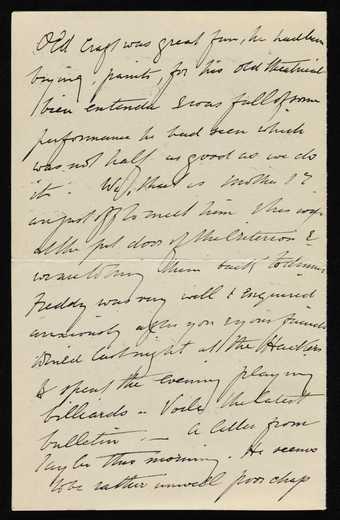 Old Craft was great fun, he had been
buying paints, for his old theatrical
bien entendu & was full of some
performance he had seen which
was not half as good as we do
it. We, that is Mother & I
are just off to meet him this
at the pit door of the Criterion &
bring them back to dinner
Freddy was very well & enquired
anxiously after you & your friends
dined last night at the
& spent the evening playing
billiards – Voila the latest
bulletin. — A letter from
this morning. He seems
to be rather unwell poor chap